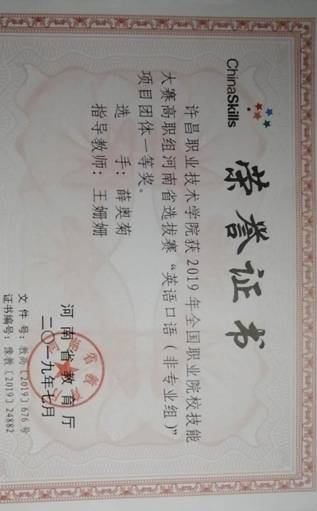 ChinaSkills
荣誉证书
许昌职业技术学院获2019年全国职业院校技能
大赛高职组河南省选拔赛“英语口语(非专业组)”
项目团体一等奖。
选 手:薛奥菊
指导教师:王姗姗
河南省教育厅
二〇一九年七月
文 件 号:教高〔2019〕676号
证书编号:豫教〔2019〕24882